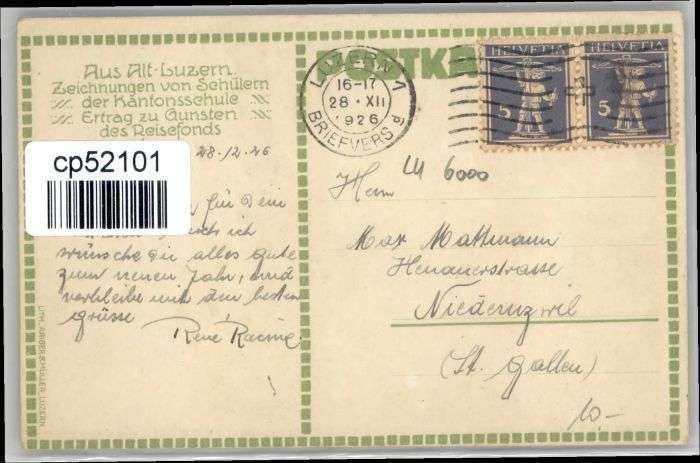 Aus Alt-Luzern.
Zeichnungen von Schülern
der Kantonsschule
Ertrag zu Gunsten
des Reisefonds
28.12.26
cp52101
für Dein
ich
wünsche Dir alles gute
zum neuen Jahr, und
verbleibe mit den besten
grüsse
René Racine
LITH. KREBSER-MÜLLER, LUZERN
POSTKA
LUZERN 1
16-17
28.XII
1926
BRIEFVERS
HELVETIA HELVETIA
5 5
LU 6000
Herrn
Max Mattmann
Henauerstrasse
Niederuzwil
(St. Gallen)
10.-